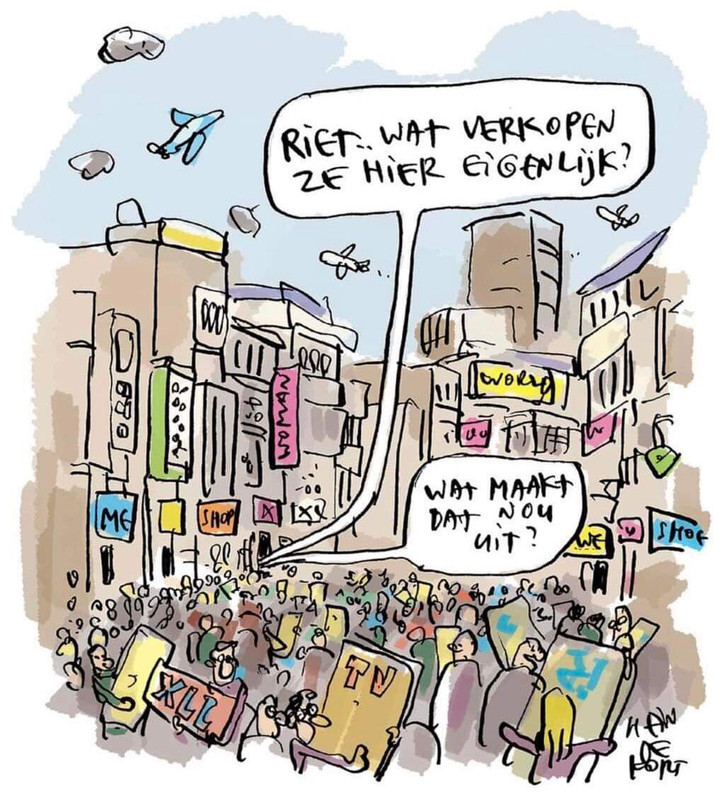 RIET.. WAT VERKOPEN
ZE HIER EIGENLIJK?
WORLD
WOMAN
WAT MAAKT
DAT NOU
UIT?
ME
SHOP
X
XL
WE
U
SHOE
XLL
TV
HEIN
DE
KORT